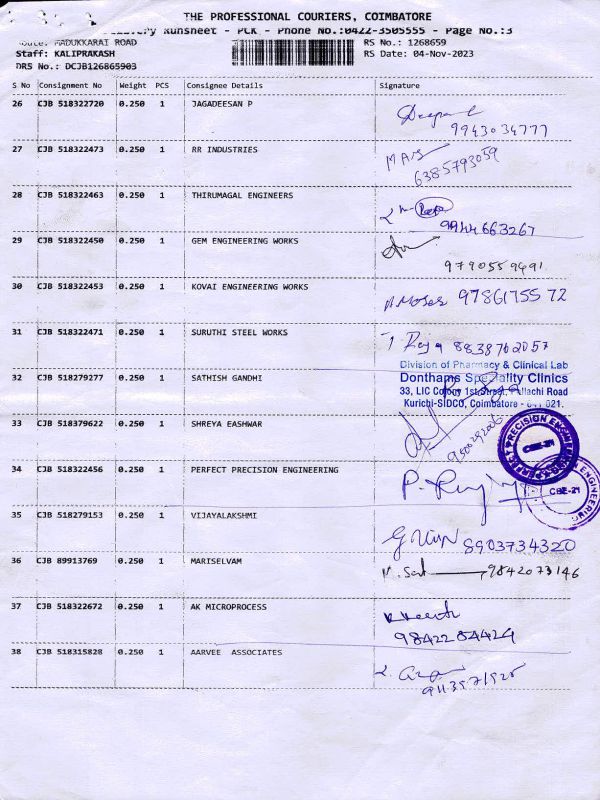 THE PROFESSIONAL COURIERS, COIMBATORE
Runsheet - PCK - Phone No.:0422-3505555 - Page No.:3
MADUKKARAI ROAD
RS No.: 1268659
Staff: KALIPRAKASH
RS Date: 04-Nov-2023
DRS No.: DCJB126865903
S No Consignment No Weight PCS Consignee Details Signature
26 CJB 518322720 0.250 1 JAGADEESAN P
9943034777
27 CJB 518322473 0.250 1 RR INDUSTRIES
6385793059
28 CJB 518322463 0.250 1 THIRUMAGAL ENGINEERS
9944663267
29 CJB 518322450 0.250 1 GEM ENGINEERING WORKS
9790559491
30 CJB 518322453 0.250 1 KOVAI ENGINEERING WORKS
Moses 9786175572
31 CJB 518322471 0.250 1 SURUTHI STEEL WORKS
8838762057
Division of Pharmacy & Clinical Lab
32 CJB 518279277 0.250 1 SATHISH GANDHI Donthams Speciality Clinics
33, LIC Colony 1st Street, Pollachi Road
Kurichi-SIDCO, Coimbatore - 641 021.
33 CJB 518379622 0.250 1 SHREYA EASHWAR
PERFECT PRECISION ENGINEERING
CBE-21
34 CJB 518322456 0.250 1 PERFECT PRECISION ENGINEERING
CBE-21
35 CJB 518279153 0.250 1 VIJAYALAKSHMI
8903734320
36 CJB 89913769 0.250 1 MARISELVAM
9842073146
37 CJB 518322672 0.250 1 AK MICROPROCESS
9842284424
38 CJB 518315828 0.250 1 AARVEE ASSOCIATES